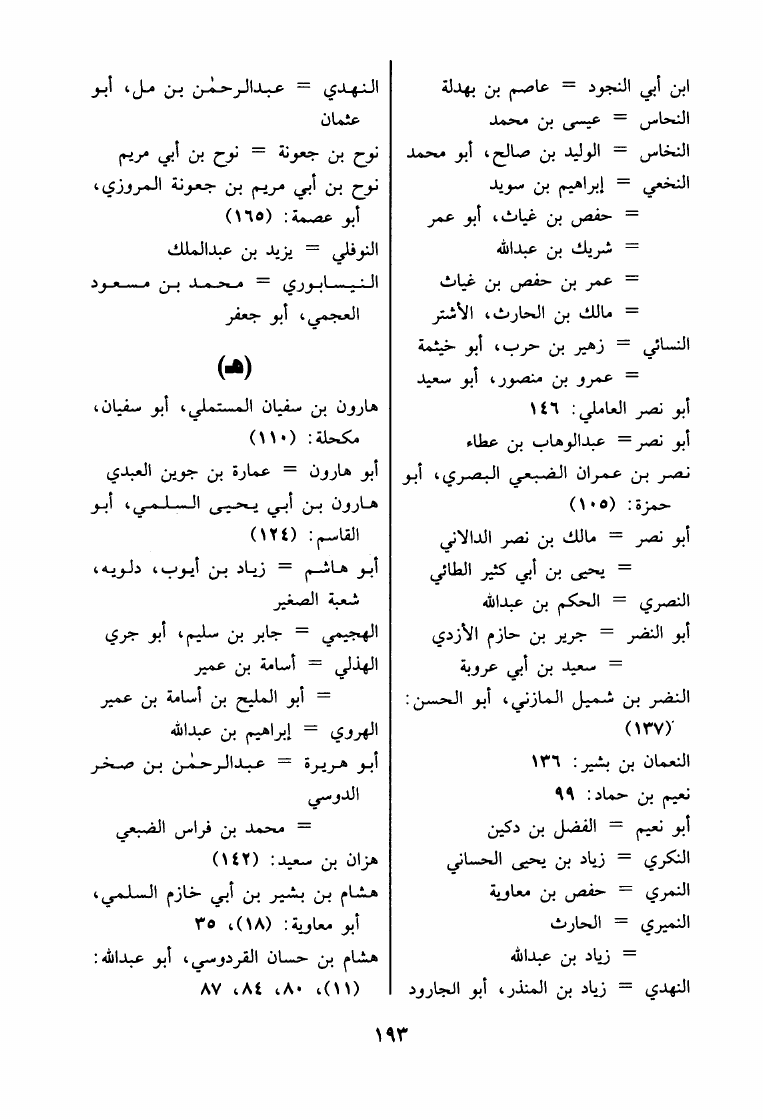 ابن أبي النجود = عاصم بن بهدلة
النحاس = عيسى بن محمد
النخاس = الوليد بن صالح، أبو محمد
النخعي = إبراهيم بن سويد
= حفص بن غياث، أبو عمر
= شريك بن عبدالله
= عمر بن حفص بن غياث
= مالك بن الحارث، الأشتر
النسائي = زهير بن حرب، أبو خيثمة
= عمرو بن منصور، أبو سعيد
أبو نصر العاملي: ١٤٦
أبو نصر = عبدالوهاب بن عطاء
نصر بن عمران الضبعي البصري، أبو
حمزة: (١٠٥)
أبو نصر = مالك بن نصر الدالاني
= يحيى بن أبي كثير الطائي
النصري = الحكم بن عبدالله
أبو النضر = جرير بن حازم الأزدي
= سعيد بن أبي عروبة
النضر بن شميل المازني، أبو الحسن:
(١٣٧)
النعمان بن بشير: ١٣٦
نعيم بن حماد: ٩٩
أبو نعيم = الفضل بن دكين
النكري = زياد بن يحيى الحساني
النمري = حفص بن معاوية
النميري = الحارث
= زياد بن عبدالله
النهدي = زياد بن المنذر، أبو الجارود
النهدي = عبدالرحمٰن بن مل، أبو
عثمان
نوح بن جعونة = نوح بن أبي مريم
نوح بن أبي مريم بن جعونة المروزي،
أبو عصمة: (١٦٥)
النوفلي = يزيد بن عبدالملك
النيسابوري = محمد بن مسعود
العجمي، أبو جعفر
(هـ)
هارون بن سفيان المستملي، أبو سفيان،
مكحلة: (١١٠)
أبو هارون = عمارة بن جوين العبدي
هارون بن أبي يحيى السلمي، أبو
القاسم: (١٢٤)
أبو هاشم = زياد بن أيوب، دلويه،
شعبة الصغير
الهجيمي = جابر بن سليم، أبو جري
الهذلي = أسامة بن عمير
= أبو المليح بن أسامة بن عمير
الهروي = إبراهيم بن عبدالله
أبو هريرة = عبدالرحمٰن بن صخر
الدوسي
= محمد بن فراس الضبعي
هزان بن سعيد: (١٤٢)
هشام بن بشير بن أبي خازم السلمي،
أبو معاوية: (١٨)، ٣٥
هشام بن حسان القردوسي، أبو عبدالله:
(١١)، ٨٠، ٨٤، ٨٧
١٩٣